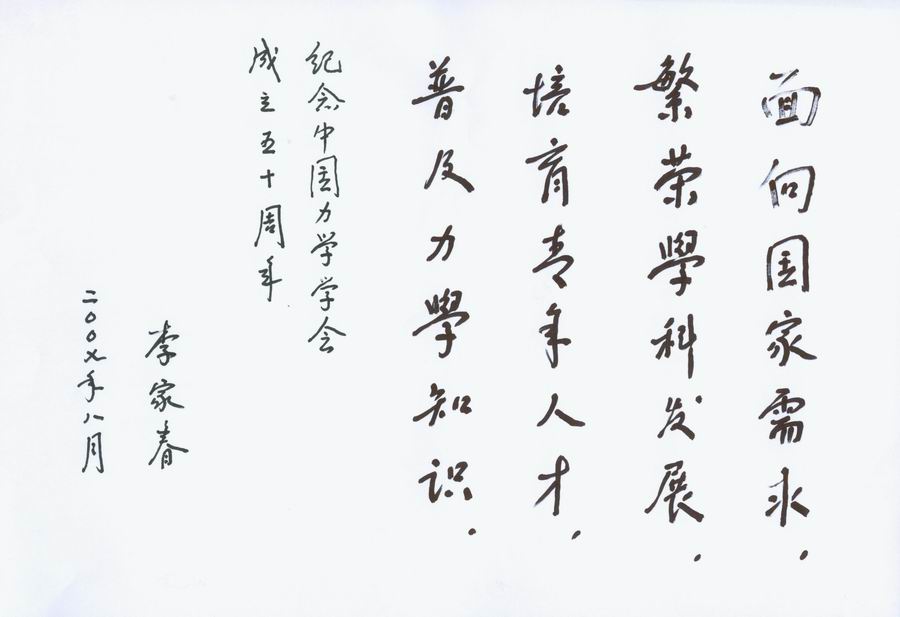 面向国家需求，
繁荣學科发展，
培育青年人才，
普及力學知识.
纪念中国力学学会
成立五十周年
李家春
二〇〇七年八月